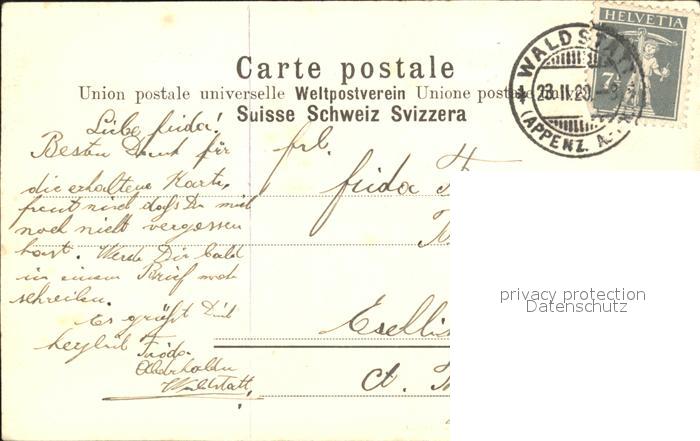 Carte postale
Union postale universelle Weltpostverein Unione postale
Suisse Schweiz Svizzera
HELVETIA
7½
WALDSTATT
23.II.20.-9
(APPENZ. A.
Liebe Frida!
Besten Dank für
die erhaltene Karte,
freut mich dass Du mich
noch nicht vergessen
hast. Werde Dir bald
in einem Brief mehr
schreiben.
Es grüsst Dich
herzlich Frida
Waldstatt
Frl.
Frida
Ct.
privacy protection
Datenschutz